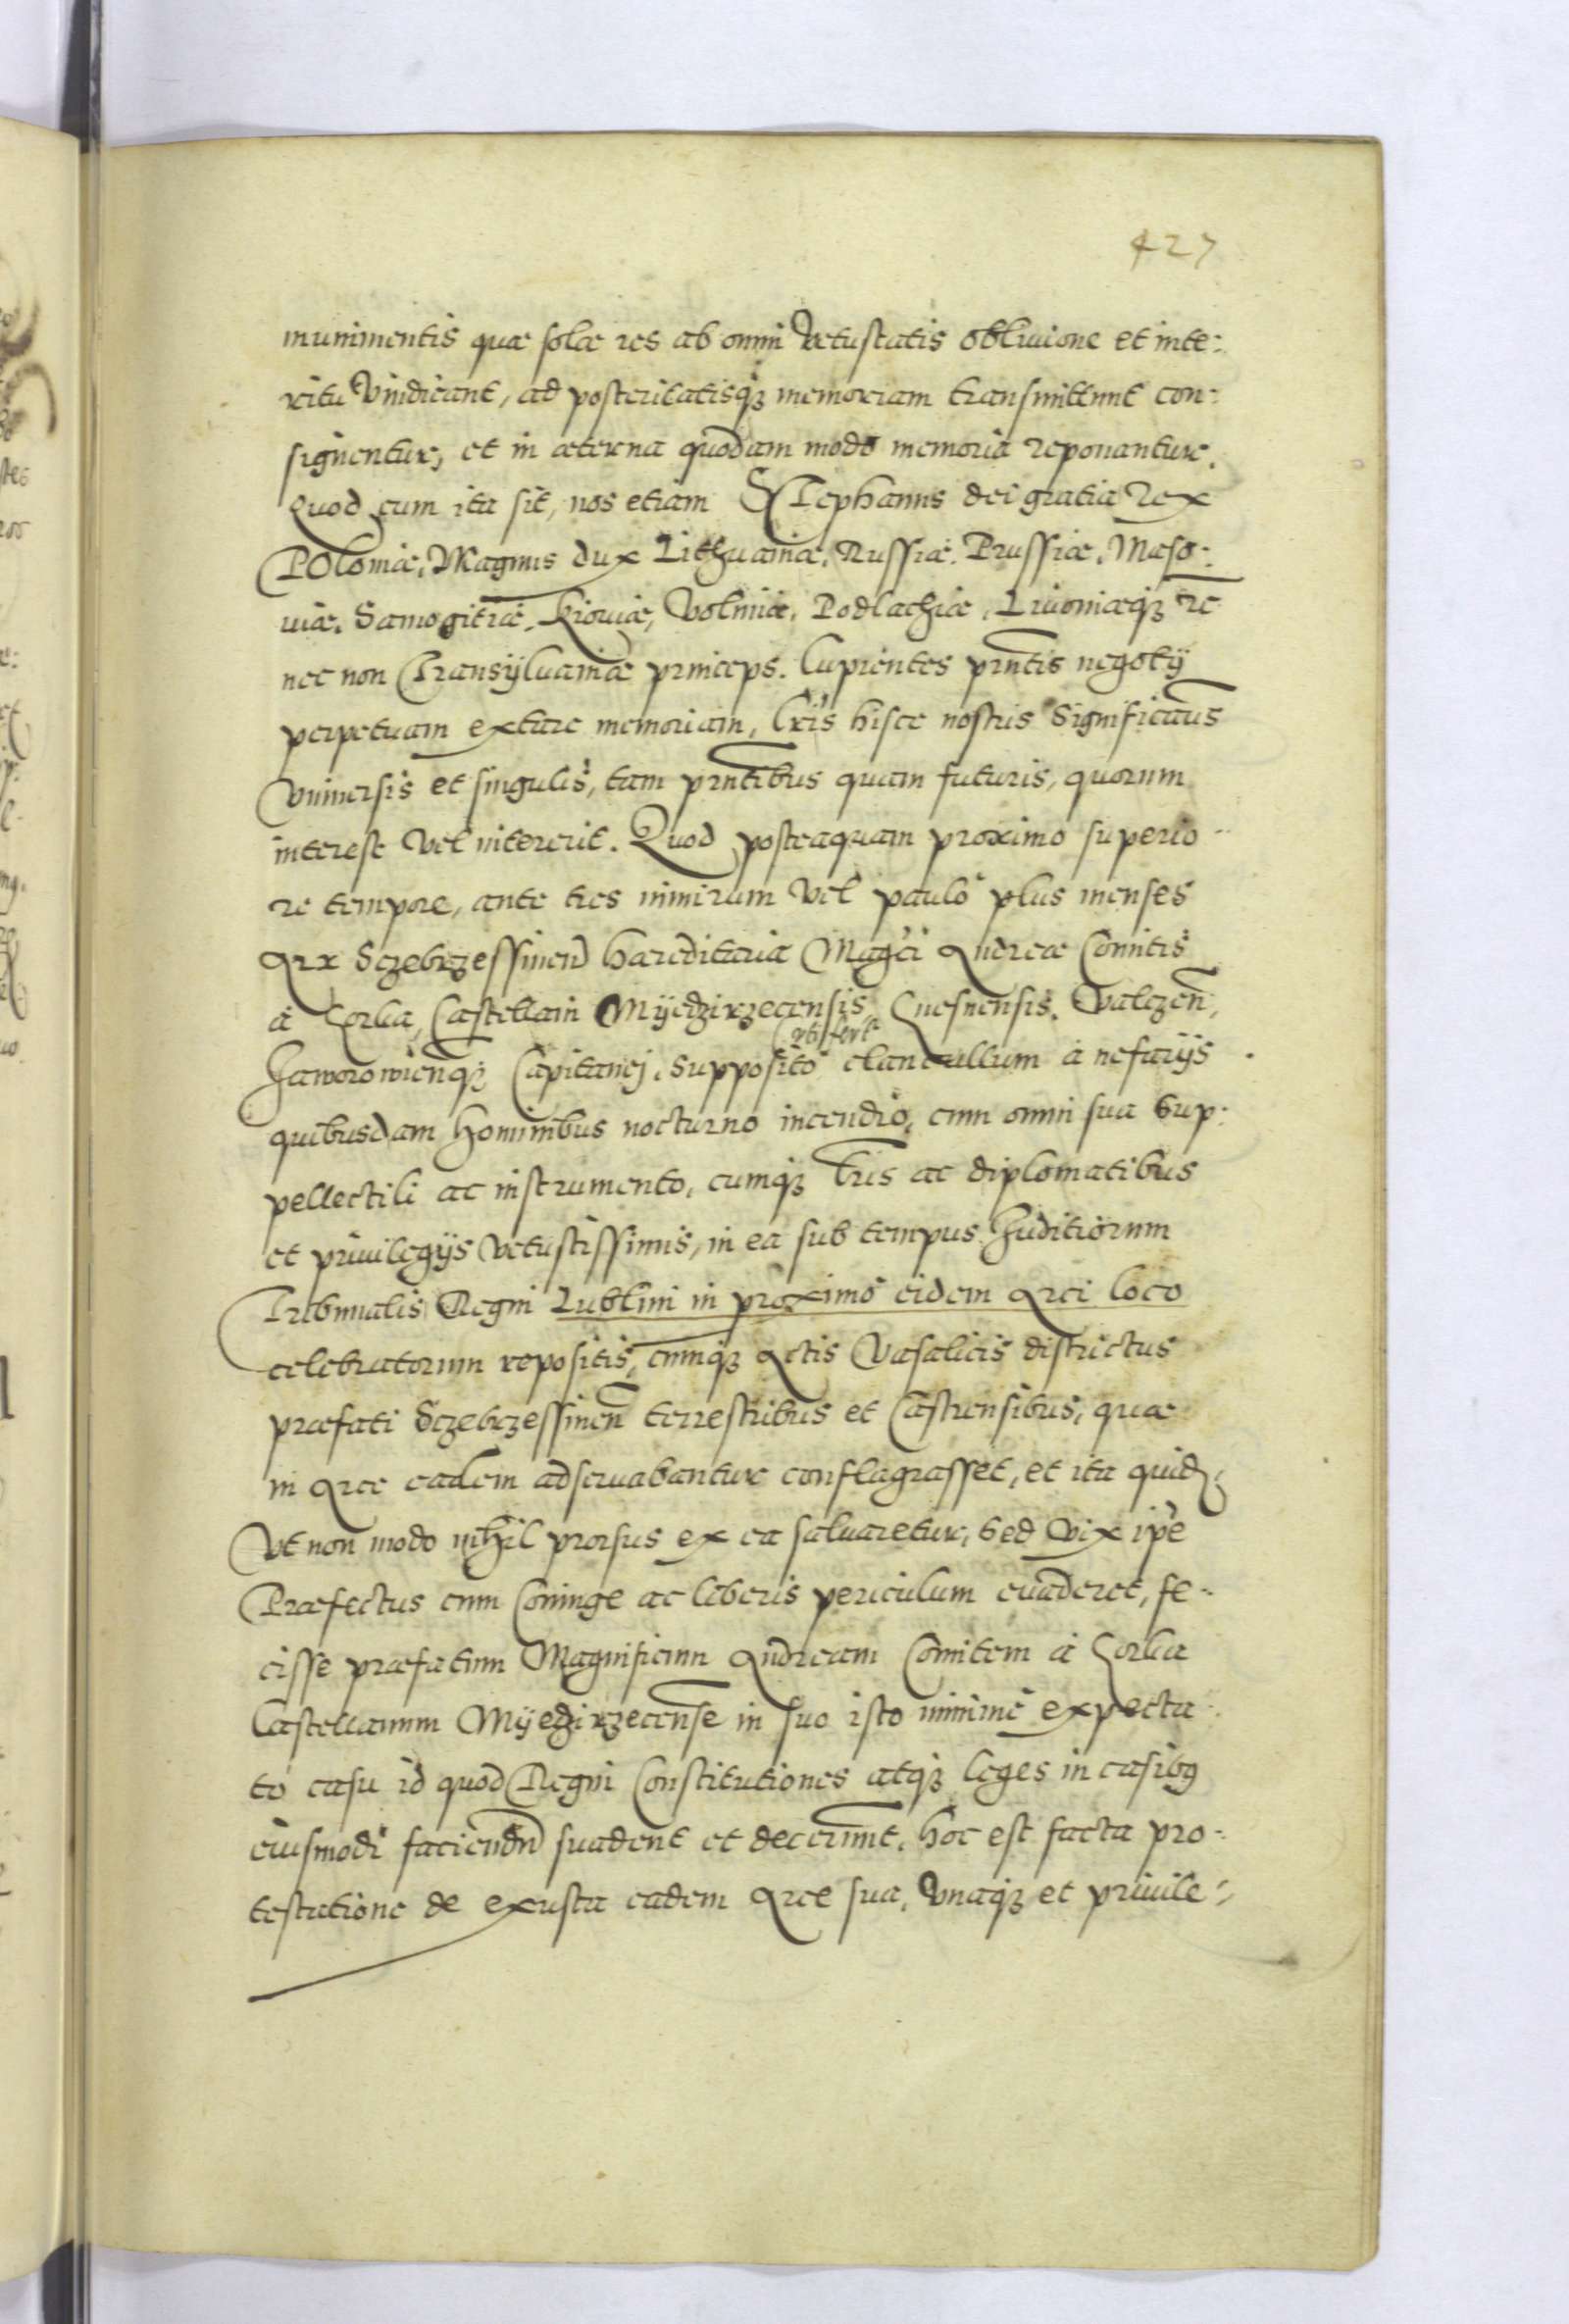 427
munimentis quæ solæ res ab omni Vetustatis oblivione et inte-:
ritu Vindicant, ad posteritatisq₃ memoriam transmittunt con-:
signentur, et in æterna quodam modo memoria reponantur.
Quod cum ita sit, nos etiam Stephanus dei gratia Rex
Poloniæ, Magnus dux Lithuaniæ, Russiæ, Prussiæ, Maso-:
uiæ, Samogitiæ, Kiouiæ, Voliniæ, Podlachiæ, Livoniæq₃ &c
nec non Transÿluaniæ princeps. Cupientes prntis negotÿ
perpetuam extare memoriam, Lris hisce nostris Significamus
Vniuersis et singulis, tam prntibus quam futuris, quorum
interest Vel intererit. Quod posteaquam proximo superio-
re tempore, ante tres nimirum Vel paulò plus menses
Arx Sczebrzessinen hæreditaria Magci Andreæ Comitis
à Gorka, Castellani Myedzirzecensis, Gnesnensis, Valczen,
Jaworowienq₃ Capitanej, supposito clancullum à nefarÿs
quibusdam hominibus nocturno incendio, cum omni sua sup-:
pellectili ac instrumento, cumq₃ Lris ac diplomatibus
et priuilegÿs Vetustissimis, in ea sub tempus Juditiorum
Tribunalis Regni Lublini in proximo eidem Arci loco
celebratorum repositis, cumq₃ Actis Vasalicis districtus
præfati Sczebrzessinen terrestribus et Castrensibus, quæ
in Arce eadem adseruabantur conflagrasset, et ita quid,
Vt non modo nihil prorsus ex ea saluaretur, sed Vix ipe
Præfectus cum Coniuge ac liberis periculum euaderet, fe-
cisse præfatum Magnificum Andream Comitem à Gorka
Castellanum Myedzirzecense in suo isto minimè expecta-
to casu id quod Regni Constitutiones atq₃ leges in casibg
eiusmodi faciendn suadent et decernunt, hoc est facta pro-
testatione de exusta eadem Arce sua, Vnaq₃ et priuile-: